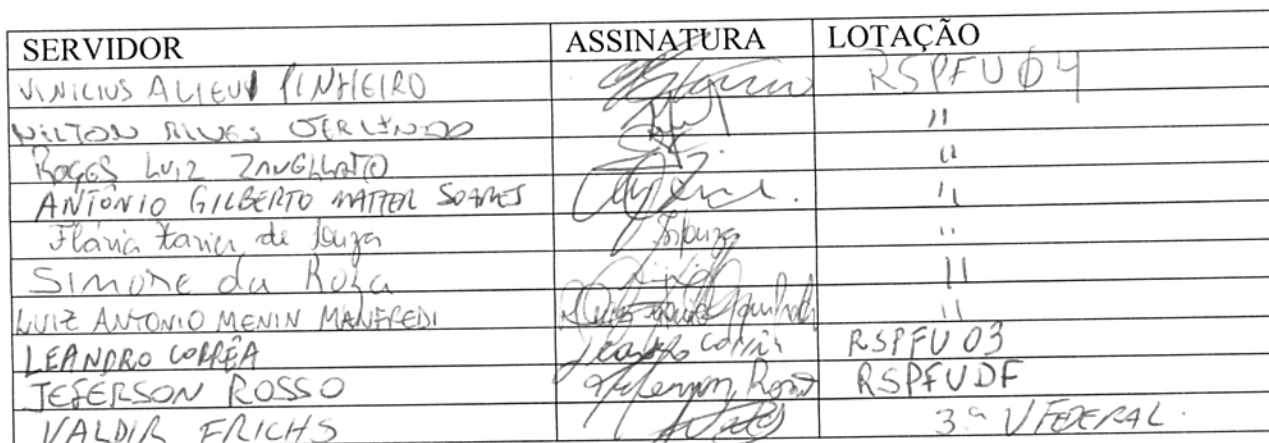 SERVIDOR ASSINATURA LOTAÇÃO
VINICIUS PINHEIRO RSPFU04
NILTON ALVES "
LUIZ "
ANTÔNIO GILBERTO MATTER SOARES "
Flávia de Souza Souza "
Simone da Roza "
LUIZ ANTONIO MENIN MANFREDI "
LEANDRO CORRÊA Leandro Corrêa RSPFU 03
JEFERSON ROSSO Jeferson Rosso RSPFUDF
VALDIR FRICHS 3ª V FEDERAL.